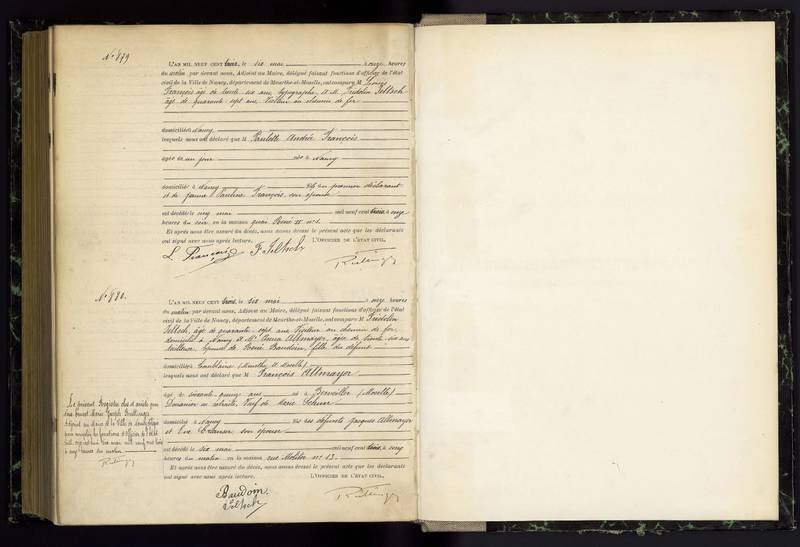 N° 879
L'AN MIL NEUF CENT trois, le six mai à onze heures
du matin par devant nous, Adjoint au Maire, délégué faisant fonctions d'officier de l'état
civil de la Ville de Nancy, département de Meurthe-et-Moselle, ont comparu M Louis
François âgé de trente-six ans, typographe et M. Fridolin Feltsch
âgé de quarante-sept ans, Visiteur au chemin de fer
domiciliés à Nancy
lesquels nous ont déclaré que M Paulette Andrée François
âgée de un jour née à Nancy
domiciliée à Nancy fille du premier déclarant
et de Jeanne Pauline François, son épouse
est décédée le cinq mai mil neuf cent trois, à onze
heures du soir en la maison quai René II n° 1.
Et après nous être assuré du décès, nous avons dressé le présent acte que les déclarants
ont signé avec nous après lecture. L'OFFICIER DE L'ÉTAT CIVIL,
L. François F. Feltsch
N° 880.
L'AN MIL NEUF CENT trois, le six mai à onze heures
du matin par devant nous, Adjoint au Maire, délégué faisant fonctions d'officier de l'état
civil de la Ville de Nancy, département de Meurthe-et-Moselle, ont comparu M Fridolin
Feltsch, âgé de quarante-sept ans, Visiteur au chemin de fer,
domicilié à Nancy et Me Anna Altmayer, âgée de trente-six ans
tailleuse, épouse de René Baudoin, fille du défunt
domiciliée (Meurthe et Moselle)
lesquels nous ont déclaré que M François Altmayer
âgé de soixante-quinze ans né à Berviller (Moselle)
Douanier en retraite, Veuf de Marie
domicilié à Nancy fils des défunts Jacques Altmayer
et Eve son épouse
est décédé le six mai mil neuf cent trois, à cinq
heures du matin en la maison rue Molitor n° 13.
Et après nous être assuré du décès, nous avons dressé le présent acte que les déclarants
ont signé avec nous après lecture. L'OFFICIER DE L'ÉTAT CIVIL,
Baudoin
Feltsch
Le présent Registre clos et arrêté par
Nous Marie Joseph
Adjoint au Maire de la Ville de Nancy, délégué
pour remplir les fonctions d'Officier de l'état
civil, six mai mil neuf cent trois
à onze heures du matin